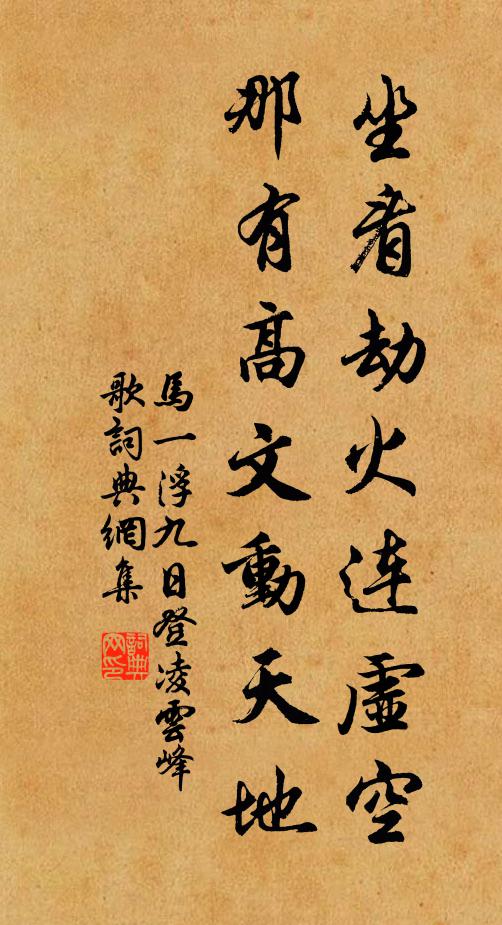 坐看劫火连虛空
那有高文動天地
馬一浮九日登凌雲峰
歌詞典網集
詞典網印